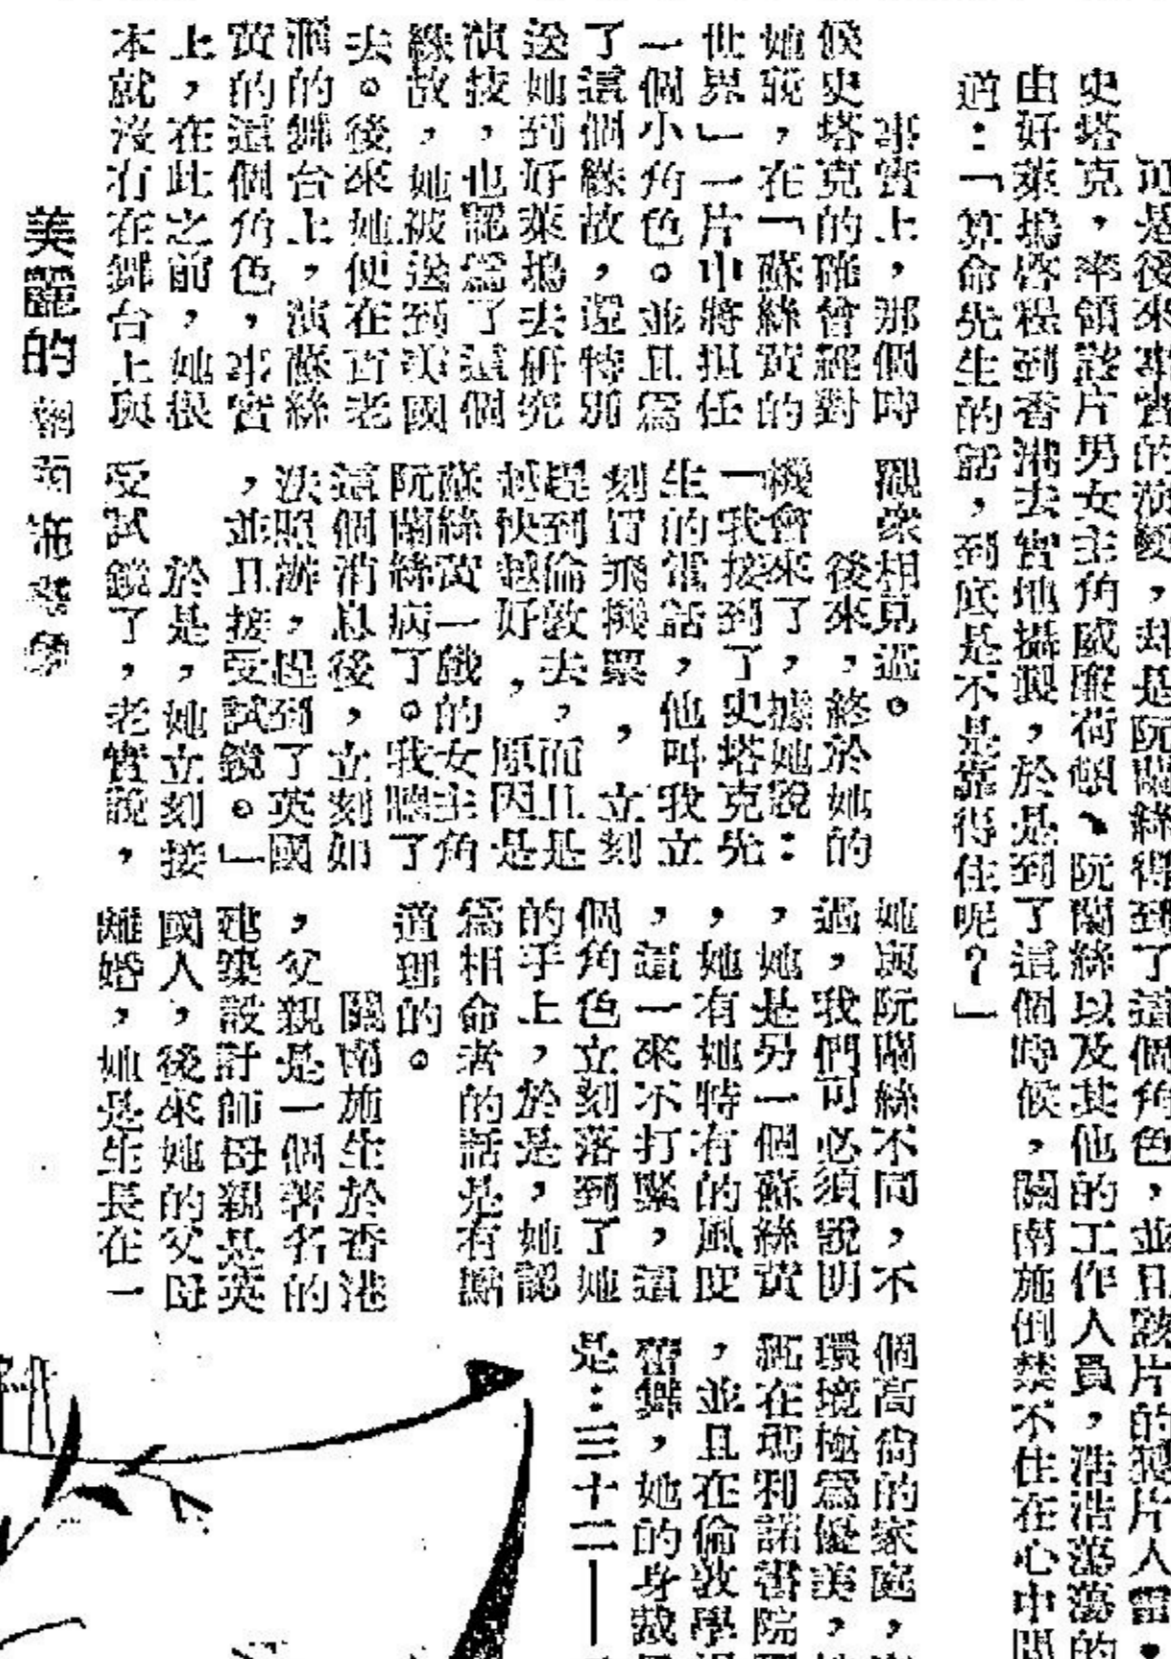 可是後來事實的演變，却是阮蘭絲得到了這個角色，並且該片的製片人雷．
史塔克，率領該片男女主角威廉荷頓、阮蘭絲以及其他的工作人員，浩浩蕩蕩的
由好萊塢啓程到香港去實地攝製，於是到了這個時候，關南施倒禁不住在心中問
道：「算命先生的話，到底是不是靠得住呢？」
事實上，那個時
候史塔克的確曾經對
她說，在「蘇絲黃的
世界」一片中將担任
一個小角色。並且爲
了這個緣故，還特別
送她到好萊塢去研究
演技，也認爲了這個
緣故，她被送到美國
去。後來她便在百老
滙的舞台上，演蘇絲
黃的這個角色，事實
上，在此之前，她根
本就沒有在舞台上與
觀衆相見過。
後來，終於她的
機會來了，據她說：
「我接到了史塔克先
生的電話，他叫我立
刻買飛機票，立刻
趕到倫敦去，而且是
越快越好，原因是
蘇絲黃一戲的女主角
阮蘭絲病了。我聽了
這個消息後，立刻如
法照辦，趕到了英國
，並且接受試鏡。」
於是，她立刻接
受試鏡了，老實說，
她與阮蘭絲不同，不
過，我們可必須說明
，她是另一個蘇絲黃
，她有她特有的風度
，這一來不打緊，這
個角色立刻落到了她
的手上，於是，她認
爲相命者的話是有點
道理的。
關南施生於香港
，父親是一個著名的
建築設計師母親是英
國人，後來她的父母
離婚，她是生長在一
個高尙的家庭，
環境極爲優美，
瓺在瑪利諾書院
，並且在倫敦學
蕾舞，她的身裁
是：三十二——
美麗的